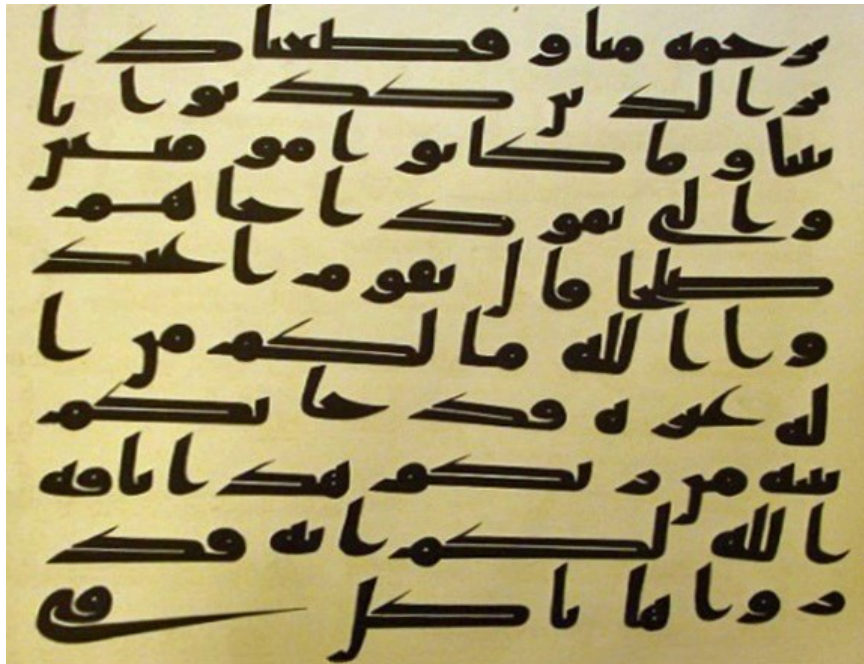 برحمة منا وقطعنا دا
بر الذين كذبوا با
يتنا وما كانوا مومنين
والى ثمود اخاهم
صلحا قال يقوم اعبد
وا الله ما لكم من ا
له غيره قد جاتكم
بينة من ربكم هذه ناقة
الله لكم اية فذ
روها تاكل في